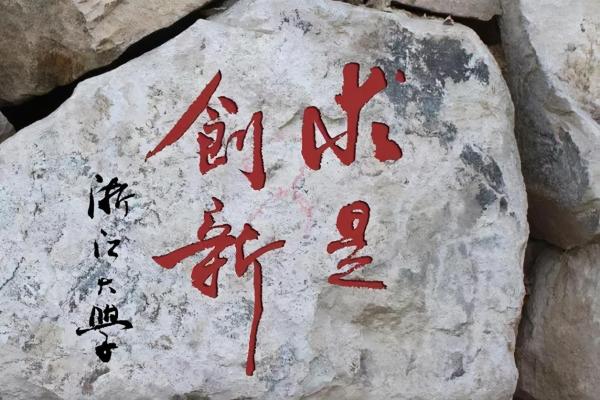 求是
創新
浙江大學